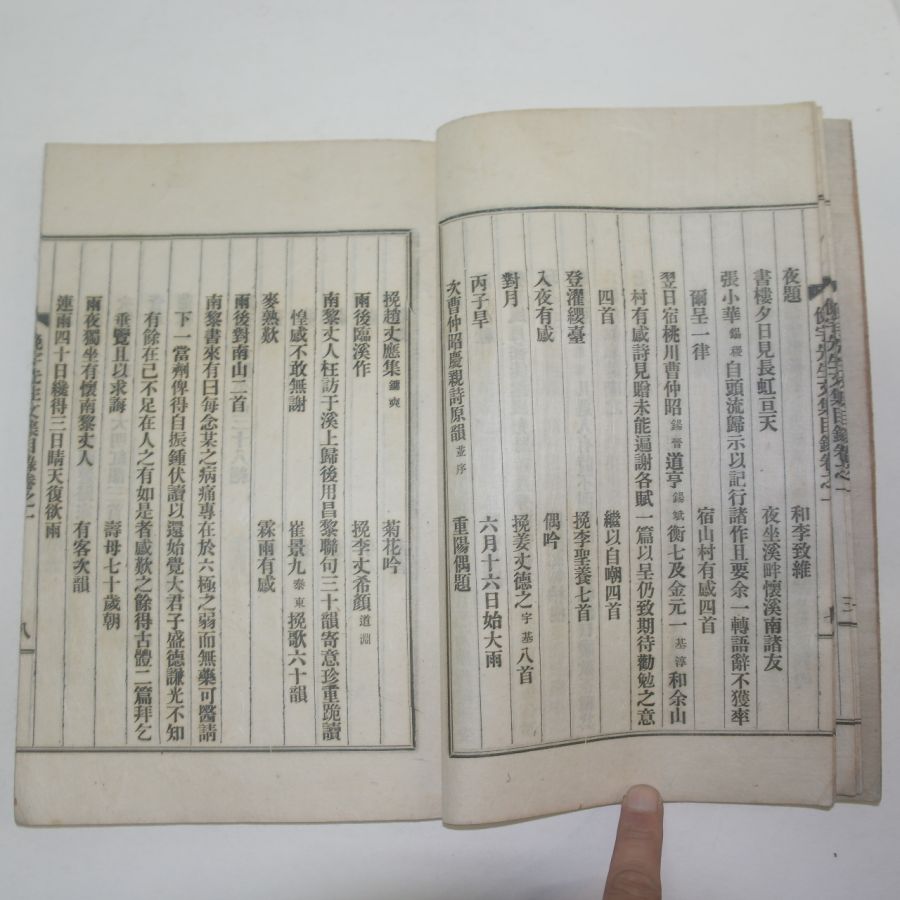 夜題 和李致維
書樓夕日見長虹亘天 夜坐溪畔懷溪南諸友
張小華錫稷自頭流歸示以記行諸作且要余一轉語辭不獲率
爾呈一律 宿山村有感四首
翌日宿桃川曹仲昭錫晉道亨錫斌衡七及金元一基淳和余山
村有感詩見贈未能遍謝各賦一篇以呈仍致期待勸勉之意
四首 繼以自嘲四首
登濯纓臺 挽李聖養七首
入夜有感 偶吟
對月 挽姜丈德之宇基八首
丙子旱 六月十六日始大雨
次曹仲昭慶親詩原韻並序 重陽偶題
挽趙丈應集鏞奭 菊花吟
雨後臨溪作 挽李丈希顏道淵
南黎丈人枉訪于溪上歸後用昌黎聯句三十韻寄意珍重跪讀
惶感不敢無謝 崔景九泰東挽歌六十韻
麥熟歎 霖雨有感
雨後對南山二首
南黎書來有曰每念某之病痛專在於六極之弱而無藥可醫請
下一當劑俾得自振鍾伏讀以還始覺大君子盛德謙光不知
有餘在己不足在人之有如是者感歎之餘得古體二篇拜乞
垂覽且以求誨 壽母七十歲朝
雨夜獨坐有懷南黎丈人 有客次韻
連雨四十日纔得三日晴天復欲雨
先生文集目錄卷之一
八